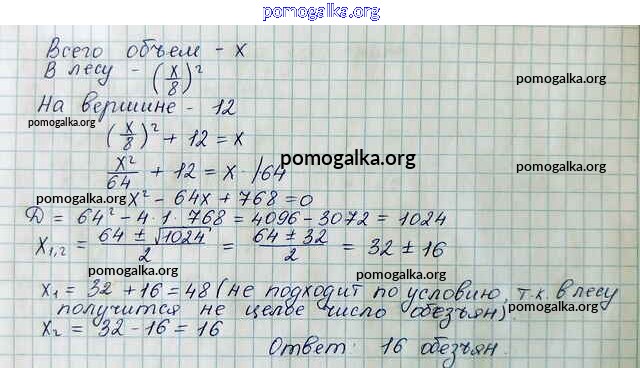 pomogalka.org
Всего объем - x
В лесу - (x/8)²
pomogalka.org
На вершине - 12
pomogalka.org
(x/8)² + 12 = x
pomogalka.org
x²/64 + 12 = x · /64
pomogalka.org
pomogalka.org
x² - 64x + 768 = 0
pomogalka.org
Д = 64² - 4·1·768 = 4096 - 3072 = 1024
x₁,₂ = (64 ± √1024)/2 = (64 ± 32)/2 = 32 ± 16
pomogalka.org
pomogalka.org
x₁ = 32 + 16 = 48 (не подходит по условию, т.к. в лесу
получится не целое число обезьян)
pomogalka.org
pomogalka.org
x₂ = 32 - 16 = 16
Ответ: 16 обезьян.